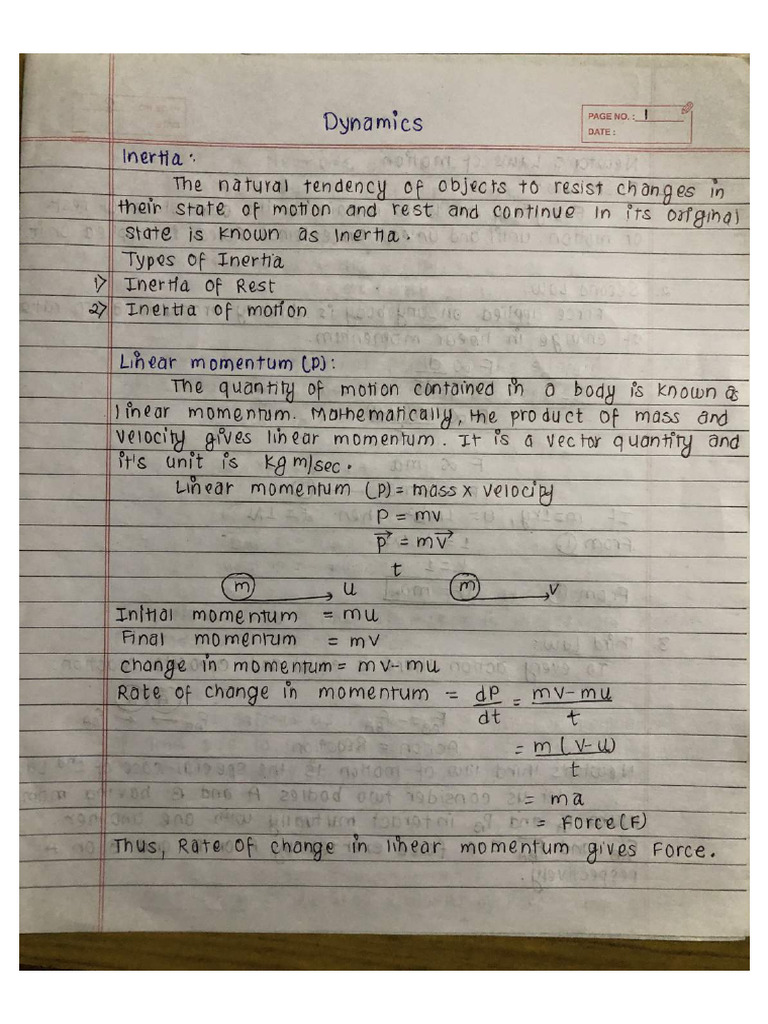 Dynamics
PAGE NO.: 1
DATE:
Inertia:
The natural tendency of objects to resist changes in
their state of motion and rest and continue in its original
state is known as Inertia.
Types of Inertia
1) Inertia of Rest
2) Inertia of motion
Linear momentum (P):
The quantity of motion contained in a body is known as
linear momentum. Mathematically, the product of mass and
velocity gives linear momentum. It is a vector quantity and
it's unit is kg m/sec.
Linear momentum (P) = mass x velocity
P = mv
p⃗ = mv⃗
t
m u m v
Initial momentum = mu
Final momentum = mv
change in momentum = mv-mu
Rate of change in momentum = dP/dt = mv-mu/t
= m(v-u)/t
= ma
= Force(F)
Thus, Rate of change in linear momentum gives Force.